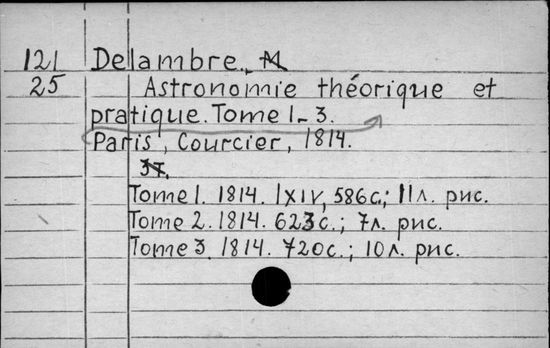 121 Delambre, M
25 Astronomie théorique et
pratique. Tome 1-3.
Paris, Courcier, 1814.
3т.
Tome 1. 1814. lxiv, 586с.; 11л. рис.
Tome 2. 1814. 623с.; 7л. рис.
Tome 3. 1814. 720с.; 10л. рис.